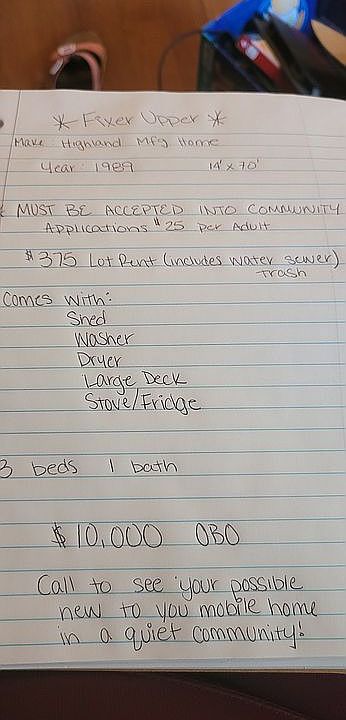 * Fixer Upper *
Make: Highland Mfg. Home
Year: 1989 14' x 70'
* MUST BE ACCEPTED INTO COMMUNITY
Applications $25 per Adult
$375 Lot Rent (includes water sewer)
trash
Comes with:
Shed
Washer
Dryer
Large Deck
Stove/Fridge
3 beds 1 bath
$10,000 OBO
Call to see your possible
new to you mobile home
in a quiet community!